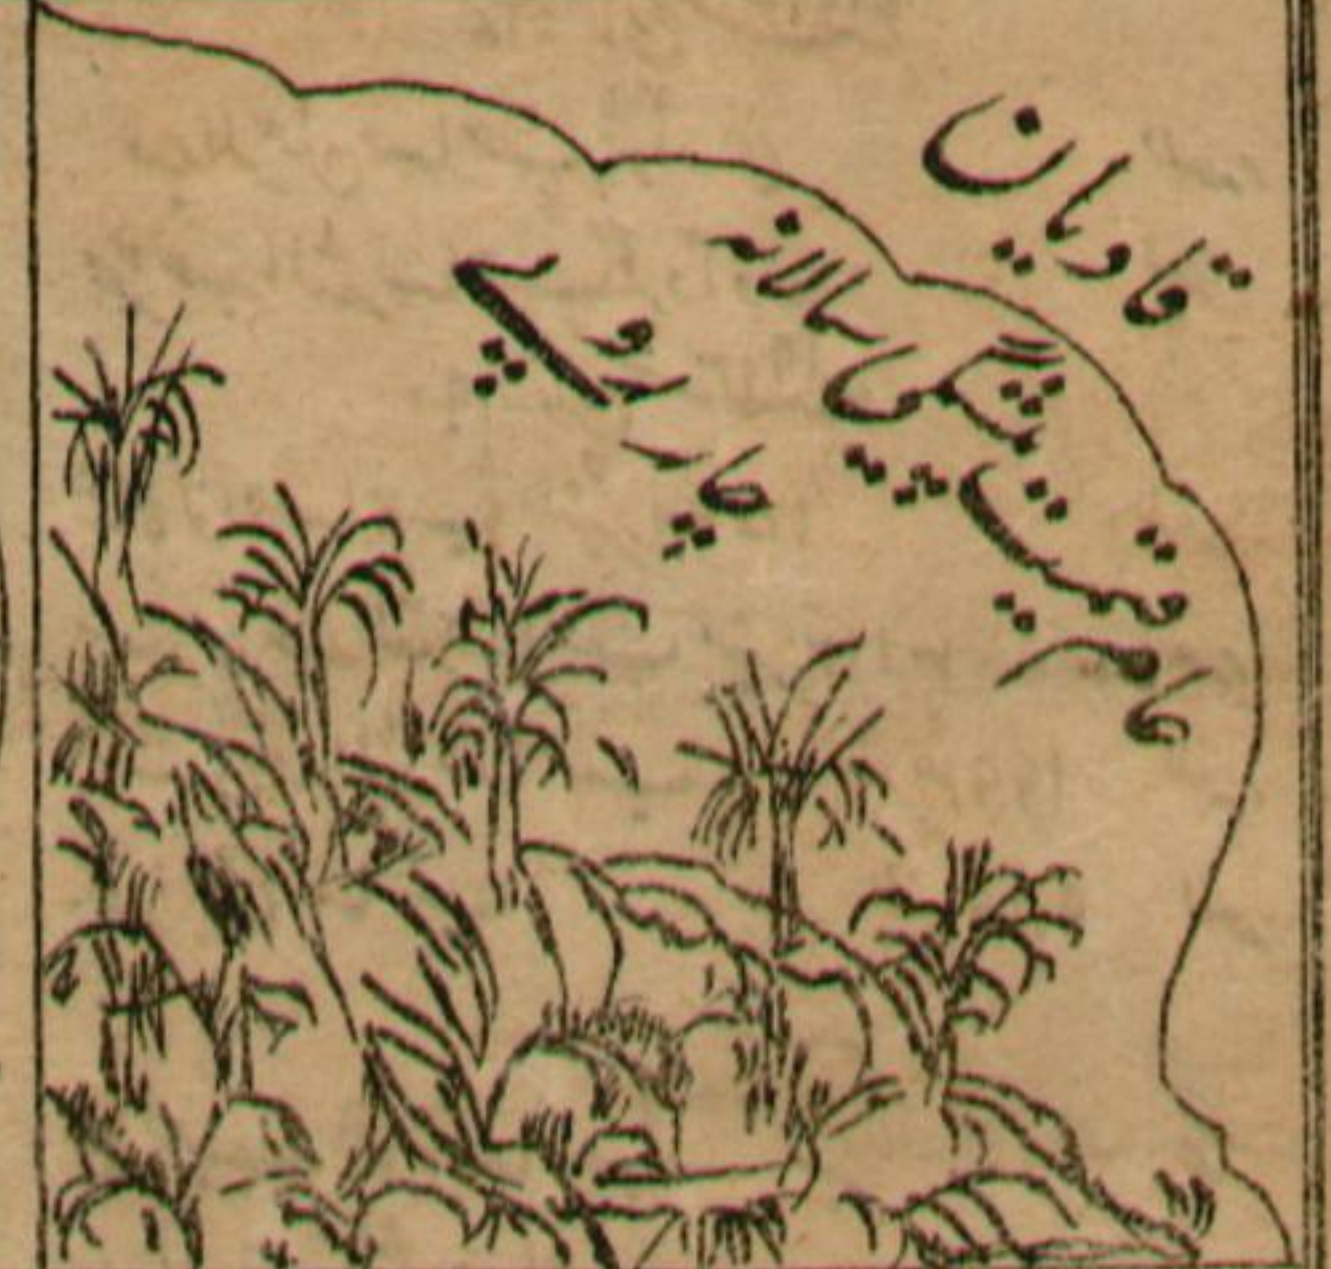 قادیان
عام قیمت پیشگی سالانہ
چار روپے